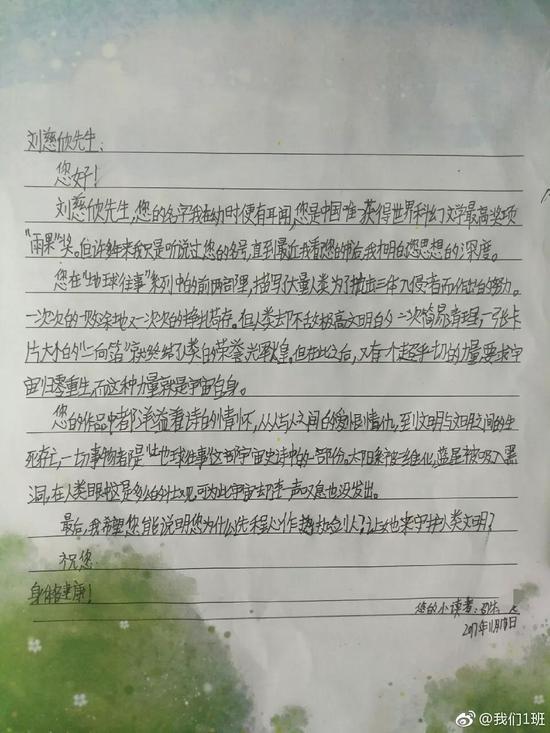 刘慈欣先生:
您好!
刘慈欣先生,您的名字我在幼时便有耳闻,您是中国唯一获得世界科幻文学最高奖项
"雨果"奖。但许多年来我只是听说过您的名号,直到最近我看您的作品后我才明白您思想的深度。
您在"地球往事"系列中的前两部里,描写了大量人类为了抗击三体入侵者而做出的努力。
一次次的一败涂地又一次次的挣扎苟存。但人类却不敌极高文明的一次简易清理,一张卡
片大小的"二向箔"就终结了人类的荣誉光辉。但在此之后,又有个超乎一切的力量要求宇
宙归零重生,而这种力量就是宇宙自身。
您的作品中都洋溢着诗的情怀,从人与人之间的爱恨情仇,到文明与文明之间的生
死存亡,一切事物都是"地球往事"这部宇宙史诗中的一部份。太阳系被二维化,蓝星被吸入黑
洞,在人类眼中这是多么的壮观,可为此宇宙却连一声叹息也没发出。
最后,我希望您能说明您为什么选程心作为执剑人?让她来守护人类文明?
祝您
身体健康!
您的小读者:
2017年11月18日
@我们1班